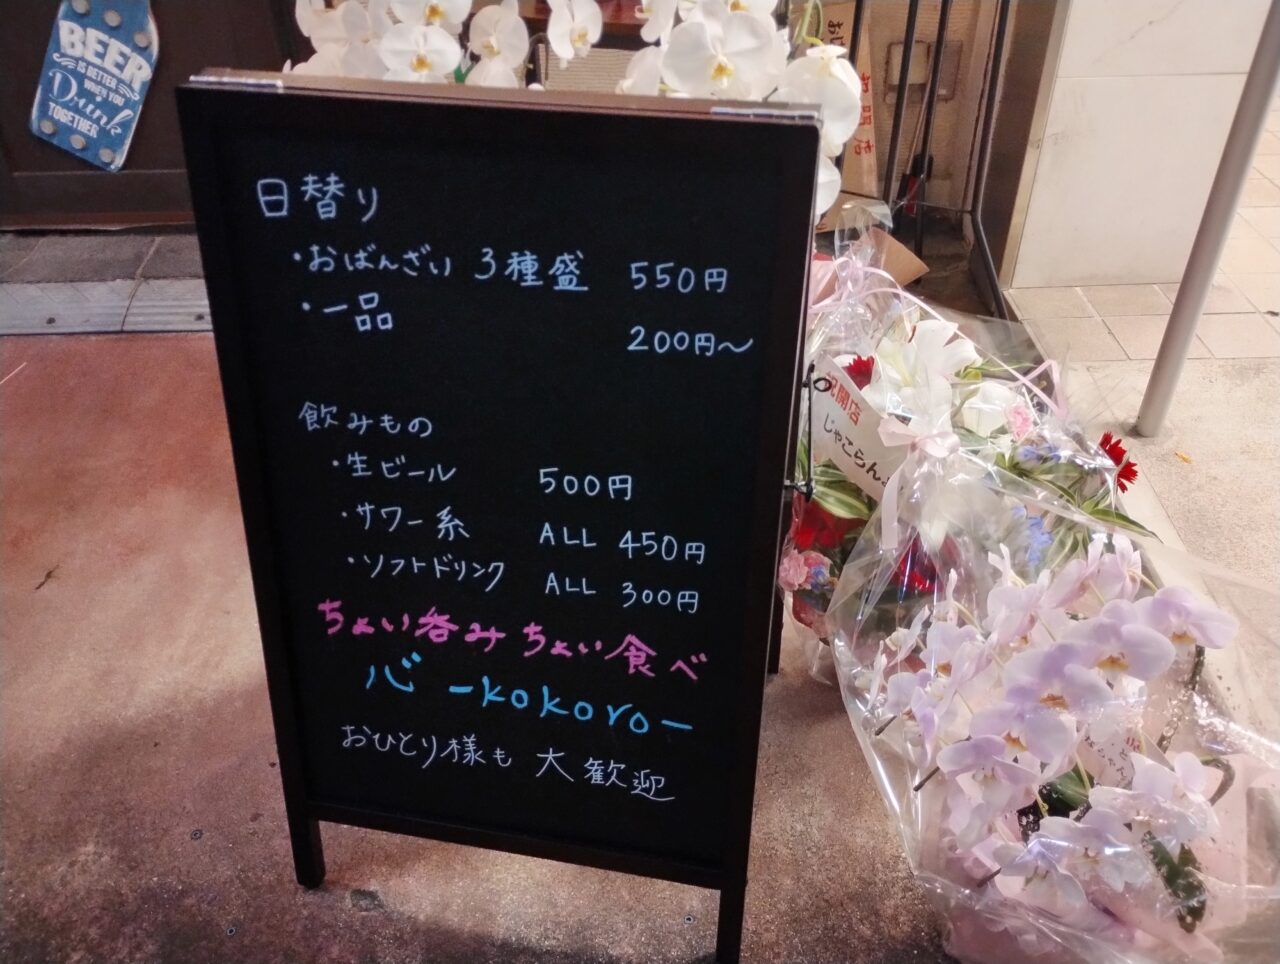 BEER
IS BETTER
WHEN YOU
Drink
TOGETHER
日替り
・おばんざい 3種盛 550円
・一品 200円～
飲みもの
・生ビール 500円
・サワー系 ALL 450円
・ソフトドリンク ALL 300円
ちょい呑みちょい食べ
心 -kokoro-
おひとり様も 大歓迎
祝開店
じゃこらん